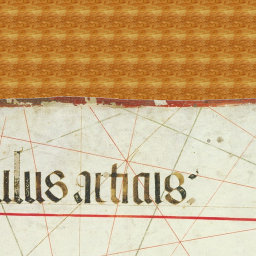 ulus articus